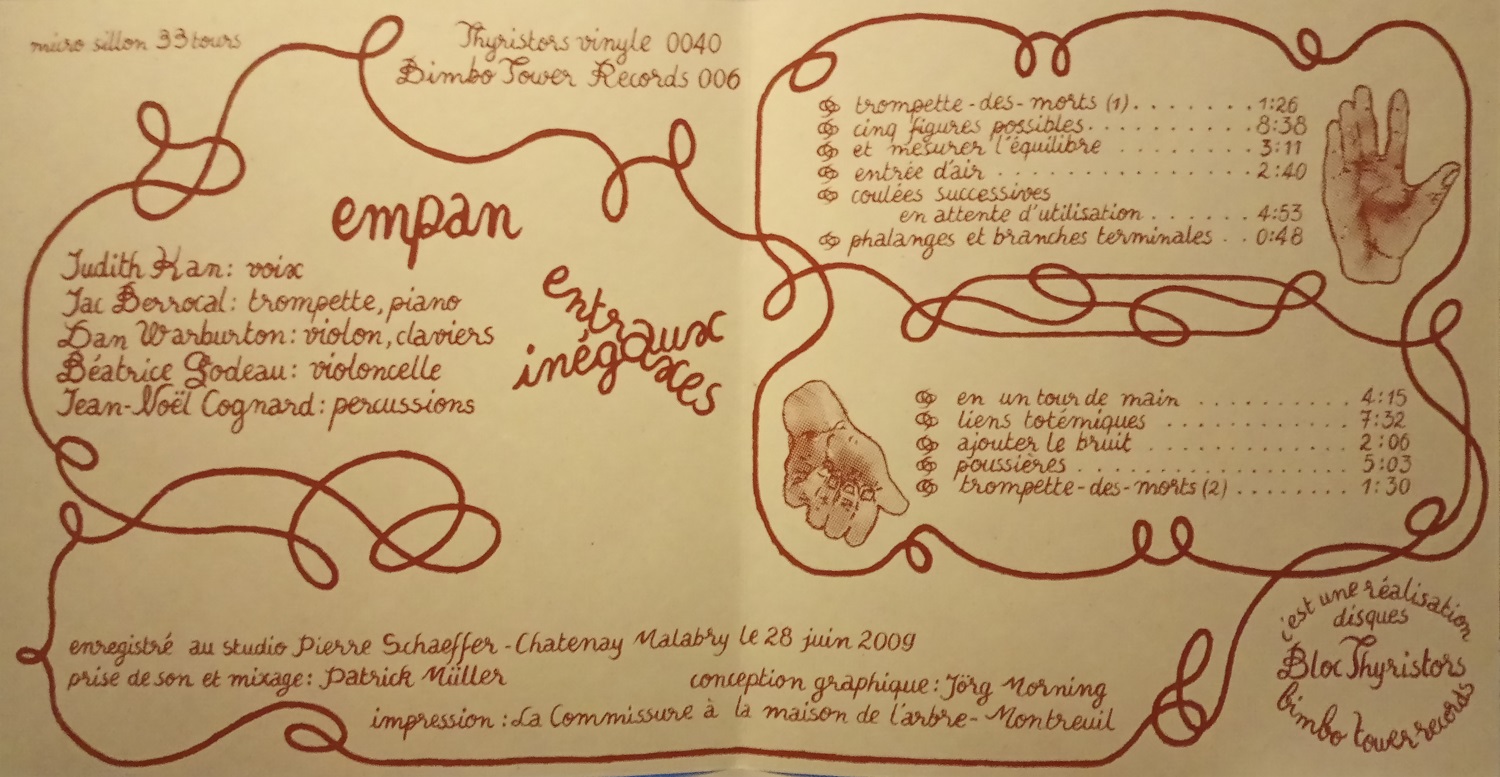 micro sillon 33 tours
Thyristors vinyle 0040
Bimbo Tower Records 006
empan
Judith Kan: voix
Jac Berrocal: trompette, piano
Dan Warburton: violon, claviers
Béatrice Godeau: violoncelle
Jean-Noël Cognard: percussions
entraxes
inégaux
trompette-des-morts (1)........1:26
cinq figures possibles..........8:38
et mesurer l'équilibre ........3:11
entrée d'air ...............2:40
coulées successives
en attente d'utilisation ......4:53
phalanges et branches terminales ..0:48
en un tour de main ..........4:15
liens totémiques ............7:32
ajouter le bruit ............2:06
poussières .................5:03
trompette-des-morts (2)........1:30
enregistré au studio Pierre Schaeffer - Chatenay Malabry le 28 juin 2009
prise de son et mixage: Patrick Müller
conception graphique: Jörg Morning
impression: La Commissure à la maison de l'arbre - Montreuil
c'est une réalisation
disques
Bloc Thyristors
bimbo tower records